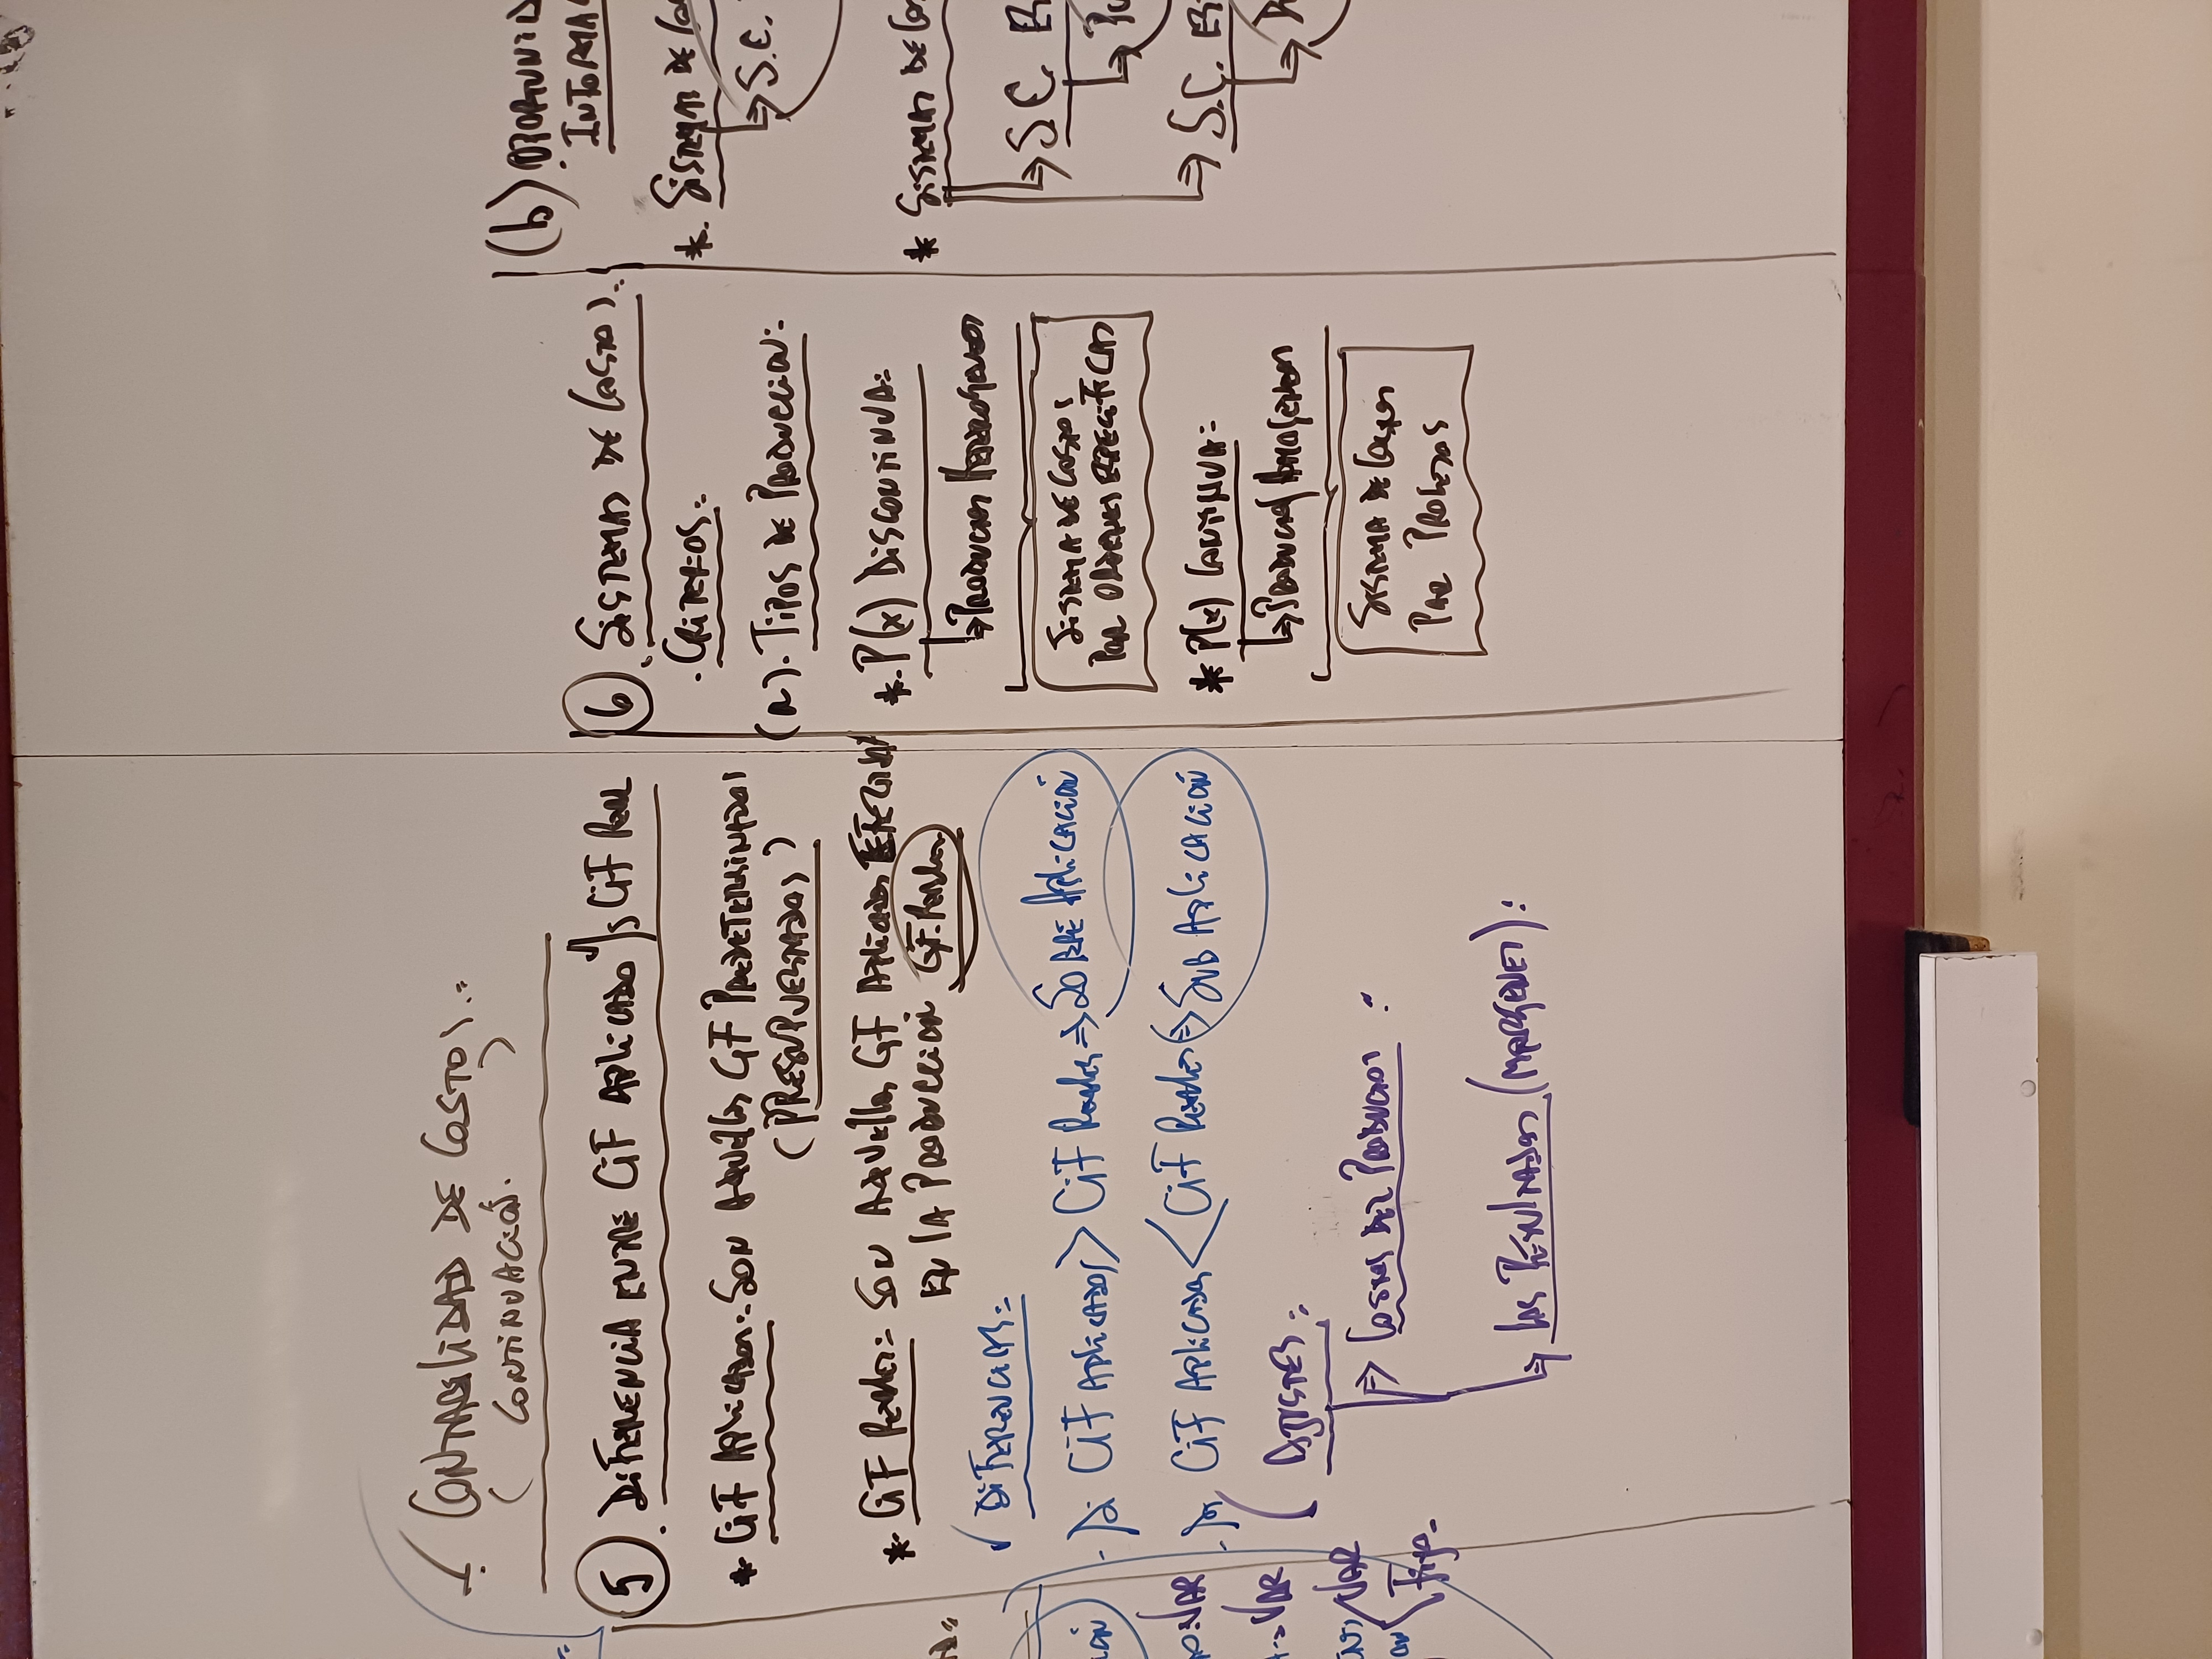 CONTABILIDAD DE COSTOS.=
( CONTINUACIÓN. )
5. DIFERENCIA ENTRE CIF APLICADO V/S CIF REAL
* CIF APLICADOS:. SON AQUELLOS CIF PREDETERMINADOS
(PRESUPUESTADOS)
*. CIF REALES= SON AQUELLOS CIF APLICADOS
EN LA PRODUCCIÓN CIF. REALES
✓ DIFERENCIAS=
- Si CIF APLICADOS > CIF REALES => SOBRE APLICACIÓN
- Si CIF APLICADOS < CIF REALES => SUB APLICACIÓN
AJUSTES:
→ COSTOS DEL PRODUCTO :
→ LOS RESULTADOS (MARGENES):
6. SISTEMAS DE COSTOS.
. CRITERIOS=
(a). TIPOS DE PRODUCCION=
*. P(x) DISCONTINUA=
→ PRODUCTOS HETEROGENEOS
SISTEMA DE COSTOS
POR ORDENES ESPECIFICAS
* P(x) CONTINUA=
→ PRODUCTOS HOMOGENEOS
SISTEMA DE COSTOS
POR PROCESOS
(b) OPORTUNID
INFORMA
*. SISTEMAS DE CO
→ S.C.
* SISTEMAS DE COS
→ S.C. E
→ S.C. E
VAR
VAR
VAR
FIJO.